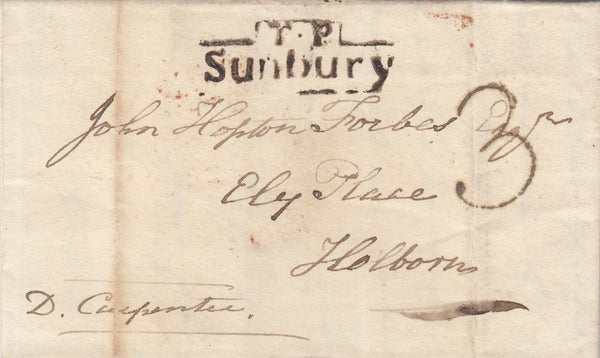 T.P
Sunbury
John Hopton Forbes Esqr
3
Ely Place
Holborn
D. Carpenter.